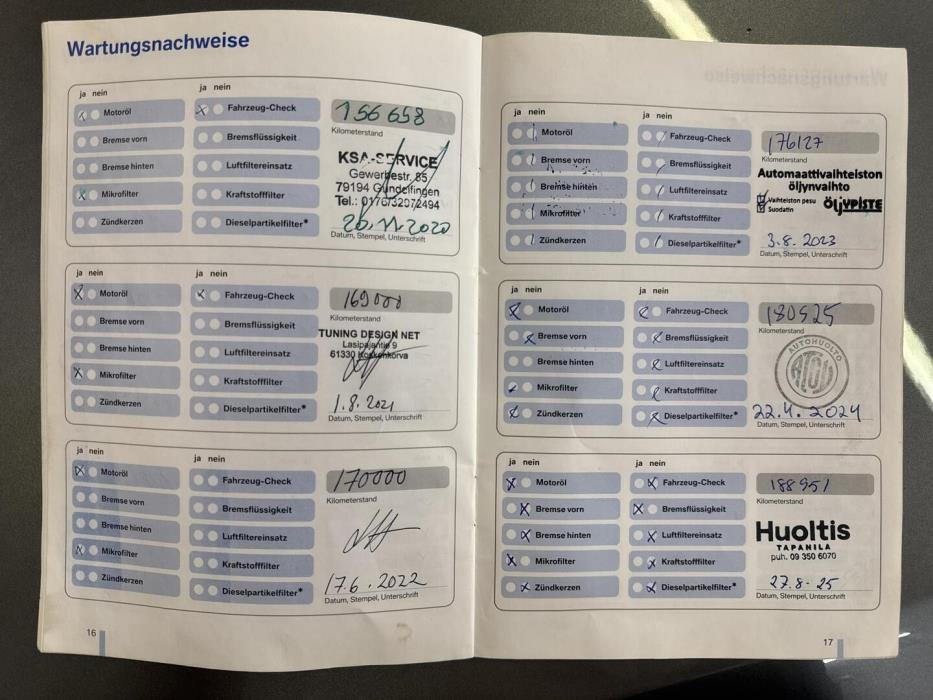 Wartungsnachweise
ja nein
ja nein
Motoröl
Fahrzeug-Check
156 658
Kilometerstand
Bremse vorn
Bremsflüssigkeit
Bremse hinten
Luftfiltereinsatz
Mikrofilter
Kraftstofffilter
Zündkerzen
Dieselpartikelfilter*
KSA-SERVICE
Gewerbestr. 85
79194 Gundelfingen
Tel.: 0176/32072494
26.11.2020
Datum, Stempel, Unterschrift
ja nein
ja nein
Motoröl
Fahrzeug-Check
169000
Kilometerstand
Bremse vorn
Bremsflüssigkeit
Bremse hinten
Luftfiltereinsatz
Mikrofilter
Kraftstofffilter
Zündkerzen
Dieselpartikelfilter*
TUNING DESIGN NET
Lasipajantie 9
61330 Koskenkorva
1.8.2021
Datum, Stempel, Unterschrift
ja nein
ja nein
Motoröl
Fahrzeug-Check
170000
Kilometerstand
Bremse vorn
Bremsflüssigkeit
Bremse hinten
Luftfiltereinsatz
Mikrofilter
Kraftstofffilter
Zündkerzen
Dieselpartikelfilter*
17.6.2022
Datum, Stempel, Unterschrift
16
ja nein
ja nein
Motoröl
Fahrzeug-Check
176127
Kilometerstand
Bremse vorn
Bremsflüssigkeit
Bremse hinten
Luftfiltereinsatz
Mikrofilter
Kraftstofffilter
Zündkerzen
Dieselpartikelfilter*
Automaattivaihteiston
öljynvaihto
Vaihteiston pesu
Suodatin
ÖLJYPISTE
3.8.2023
Datum, Stempel, Unterschrift
ja nein
ja nein
Motoröl
Fahrzeug-Check
180525
Kilometerstand
Bremse vorn
Bremsflüssigkeit
Bremse hinten
Luftfiltereinsatz
Mikrofilter
Kraftstofffilter
Zündkerzen
Dieselpartikelfilter*
AUTOHUOLTO
22.4.2024
Datum, Stempel, Unterschrift
ja nein
ja nein
Motoröl
Fahrzeug-Check
188951
Kilometerstand
Bremse vorn
Bremsflüssigkeit
Bremse hinten
Luftfiltereinsatz
Mikrofilter
Kraftstofffilter
Zündkerzen
Dieselpartikelfilter*
Huoltis
TAPANILA
puh. 09 350 6070
27.8-25
Datum, Stempel, Unterschrift
17